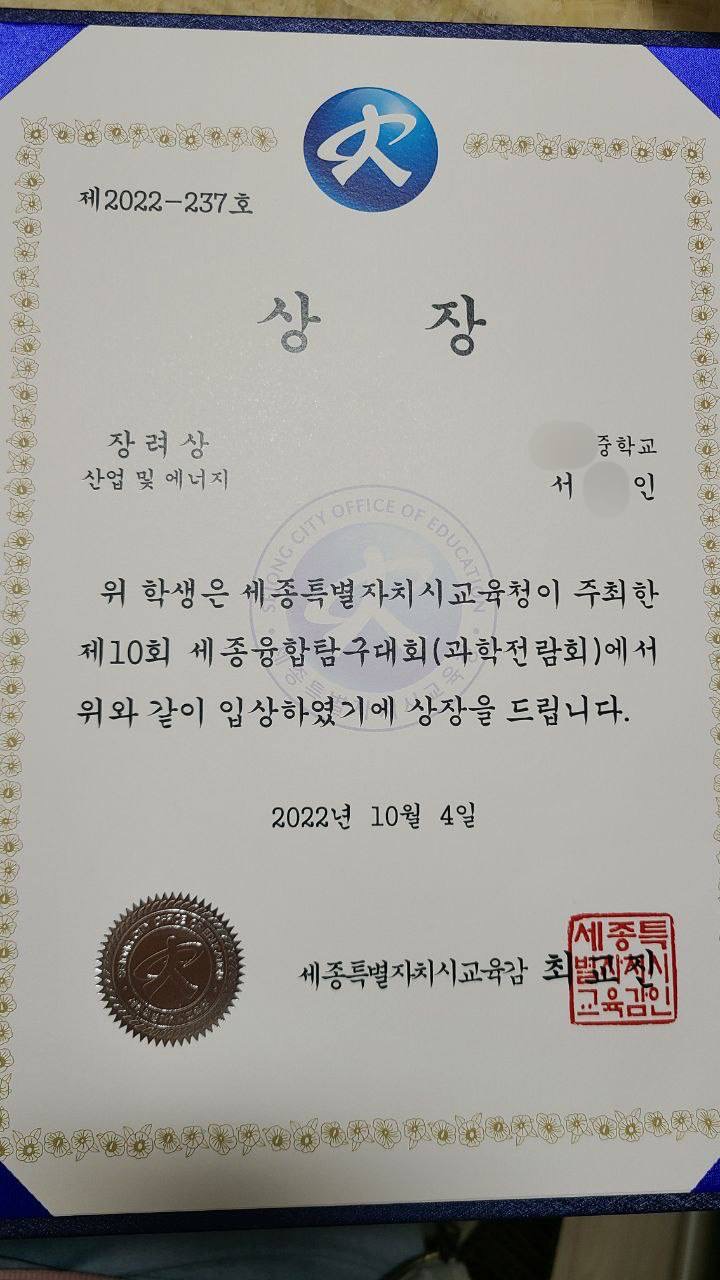 제2022-237호
상 장
장려상
산업 및 에너지
중학교
서 인
SEJONG CITY OFFICE OF EDUCATION
위 학생은 세종특별자치시교육청이 주최한
제10회 세종융합탐구대회(과학전람회)에서
위와 같이 입상하였기에 상장을 드립니다.
2022년 10월 4일
세종특별자치시교육감 최교진
세종특
별자치시
교육감인